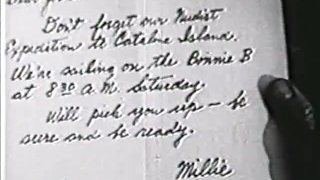 Don't forget our Nudist
Expedition to Catalina Island.
We're sailing on the Bonnie B
at 8:30 A.M. Saturday.
Will pick you up — be
sure and be ready.
Millie